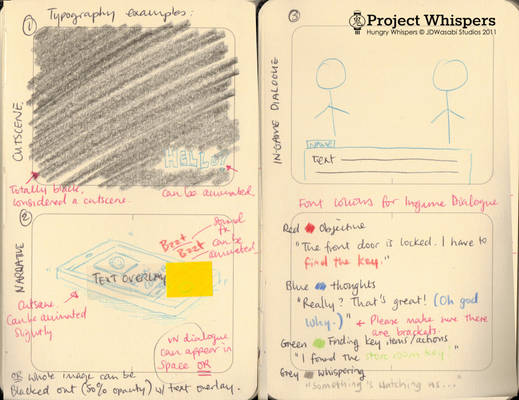 Typography examples:
1
CUTSCENE
HELLO!
Totally black,
considered a cutscene.
can be animated.
2
NARRATIVE
Bzzt
Bzzt
sound
fx
can be
animated
TEXT OVERLAY
Cutscene.
Can be animated
slightly
VN dialogue
can appear in
Space OR
OR whole image can be
blacked out (50% opacity) w/ text overlay.
3
Project Whispers
Hungry Whispers © JDWasabi Studios 2011
IN-GAME DIALOGUE
NAME
TEXT
Font colours for Ingame Dialogue
Red Objective
"The front door is locked. I have to
find the key."
Blue thoughts
"Really? That's great! (Oh god
why.)"
Please make sure there
are brackets.
Green Finding key items/actions
"I found the store room key!"
Grey Whispering
"Something's watching us..."